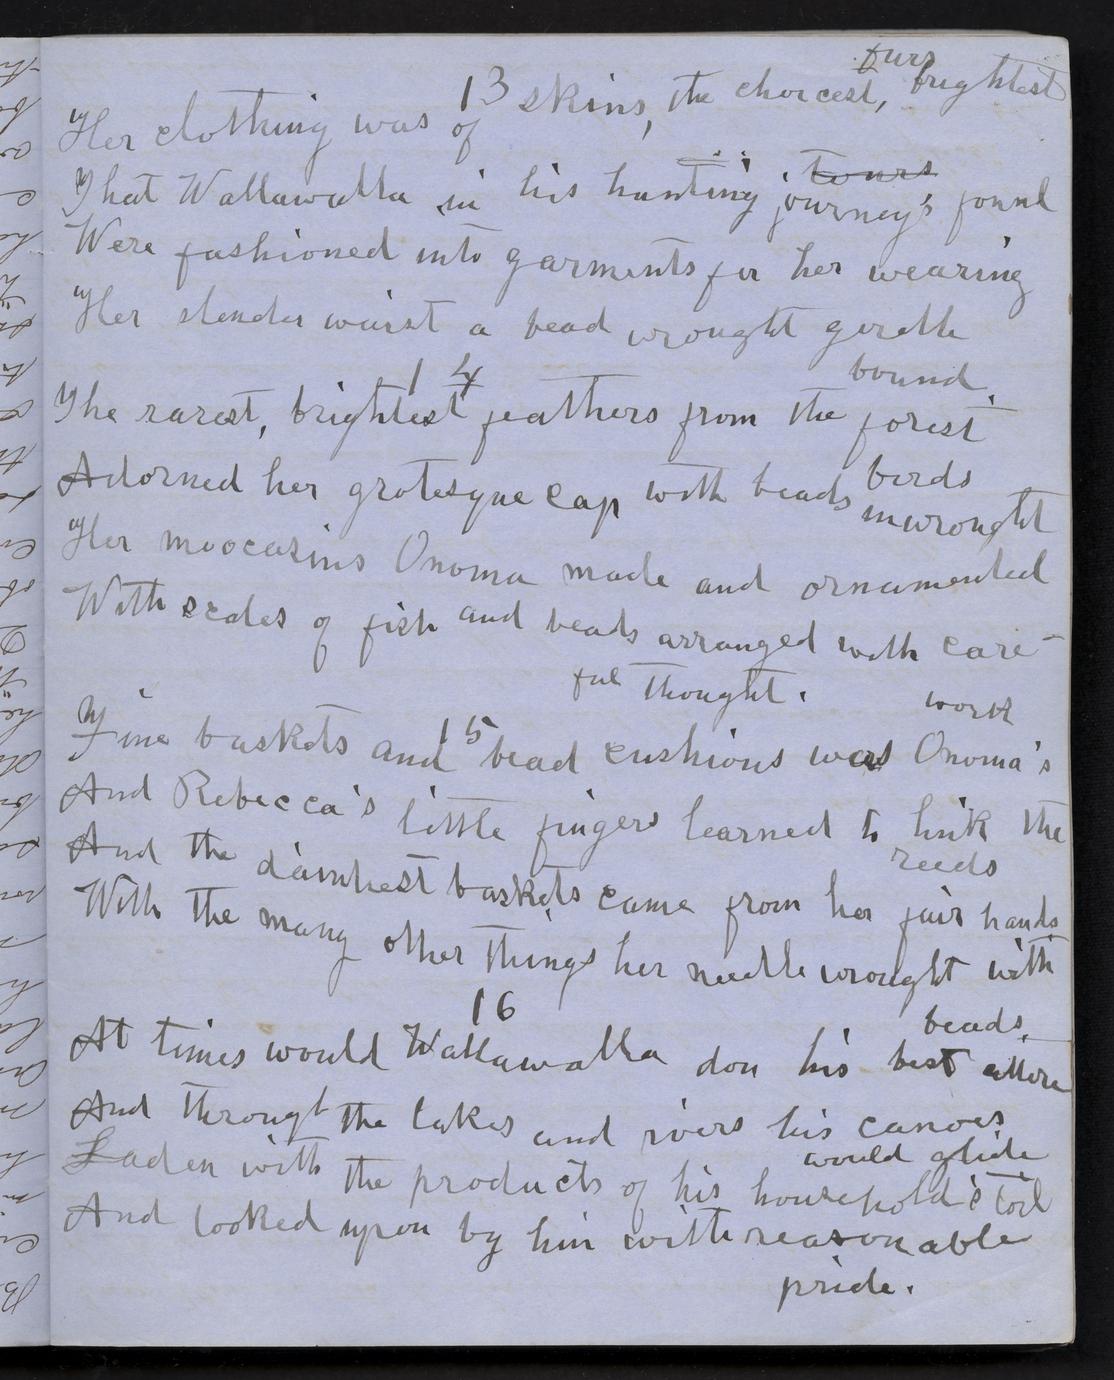 13
Her clothing was of skins, the choicest, brightest furs
That Wallawalla in his hunting tours journeys found
Were fashioned into garments for her wearing
Her slender waist a bead wrought girdle bound.
14
The rarest, brightest feathers from the forest birds
Adorned her grotesque cap with beads inwrought
Her moocasins Onoma made and ornamented
With scales of fish and beads arranged with care-
ful thought.
15
Fine baskets and bead cushions was Onoma's work
And Rebecca's little fingers learned to link the reeds
And the dainhest baskets came from her fair hands
With the many other things her needle wrought with beads.
16
At times would Wallawalla don his best attire
And through the lakes and rivers his canoes would glide
Laden with the products of his household's toil
And looked upon by him with reasonable
pride.